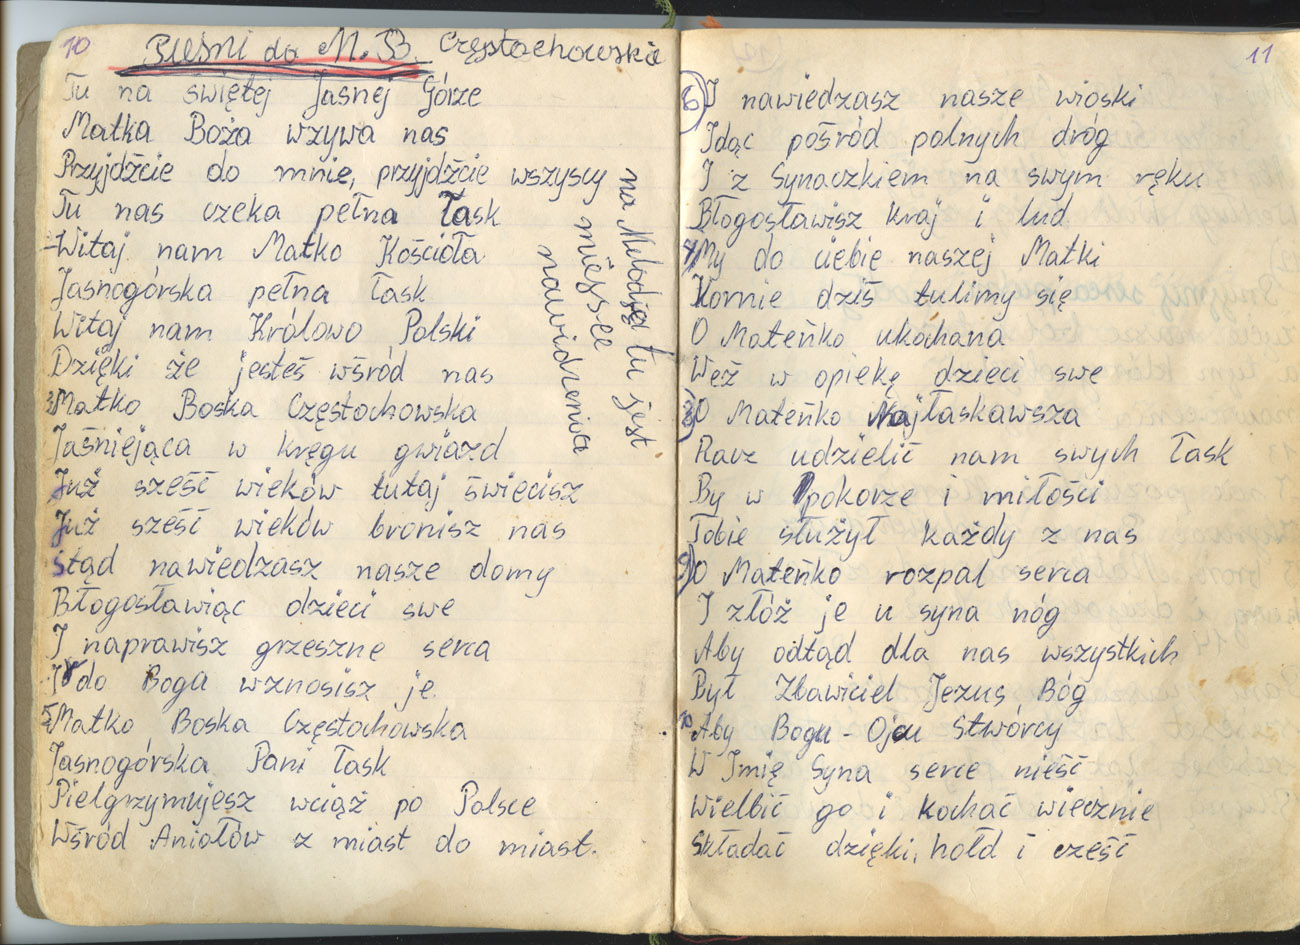 10
Pieśni do M. B. Częstochowskie
Tu na świętej Jasnej Górze
Matka Boża wzywa nas
Przyjdźcie do mnie, przyjdźcie wszyscy
Tu nas czeka pełna łask
2 Witaj nam Matko Kościoła
Jasnogórska pełna łask
Witaj nam Królowo Polski
Dzięki że jesteś wśród nas
3 Matko Boska Częstochowska
Jaśniejąca w kręgu gwiazd
Już sześć wieków tutaj świecisz
Już sześć wieków bronisz nas
Stąd nawiedzasz nasze domy
Błogosławiąc dzieci swe
I naprawisz grzeszne serca
I do Boga wznosisz je.
5 Matko Boska Częstochowska
Jasnogórska Pani łask
Pielgrzymujesz wciąż po Polsce
Wśród Aniołów z miast do miast.
na Melodię tu jest
miejsce
nawidzenia
11
6) I nawiedzasz nasze wioski
Idąc pośród polnych dróg
I z Synaczkiem na swym ręku
Błogosławisz kraj i lud
7) My do ciebie naszej Matki
Kornie dziś tulimy się
O Mateńko ukochana
Weź w opiekę dzieci swe
8) O Mateńko Najłaskawsza
Racz udzielić nam swych łask
By w pokorze i miłości
Tobie służył każdy z nas
9) O Mateńko rozpal serca
I złóż je u syna nóg
Aby odtąd dla nas wszystkich
Był Zbawiciel Jezus Bóg
10 Aby Bogu - Ojcu Stwórcy
W Imię Syna serce nieść
Wielbić go i kochać wiecznie
Składać dzięki, hołd i cześć